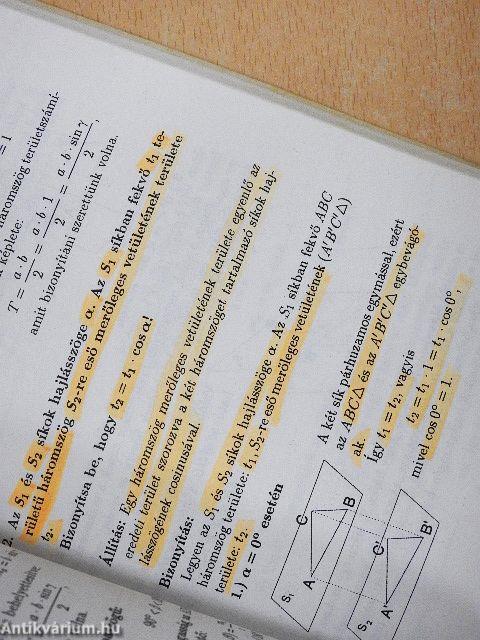 = 1
háromszög területszámí-
képlete:
T = a · b / 2 = a · b · 1 / 2 = a · b · sin γ / 2 ,
amit bizonyítani szerettünk volna.
2. Az S₁ és S₂ síkok hajlásszöge α. Az S₁ síkban fekvő t₁ te-
rületű háromszög S₂-re eső merőleges vetületének területe
t₂.
Bizonyítsa be, hogy t₂ = t₁ · cos α!
Állítás: Egy háromszög merőleges vetületének területe egyenlő az
eredeti terület szorozva a két háromszöget tartalmazó síkok haj-
lásszögének cosinusával.
Bizonyítás:
Legyen az S₁ és S₂ síkok hajlásszöge α. Az S₁ síkban fekvő ABC
háromszög területe: t₁, S₂-re eső merőleges vetületének (A'B'C'△)
területe: t₂.
1.) α = 0° esetén
A két sík párhuzamos egymással, ezért
az ABC△ és az A'B'C'△ egybevágó-
ak.
Így t₁ = t₂, vagyis
t₂ = t₁ · 1 = t₁ · cos 0°,
mivel cos 0° = 1.
S₁ A B C
S₂ A' B' C'
behelyettesítve
2
Antikvárium.hu